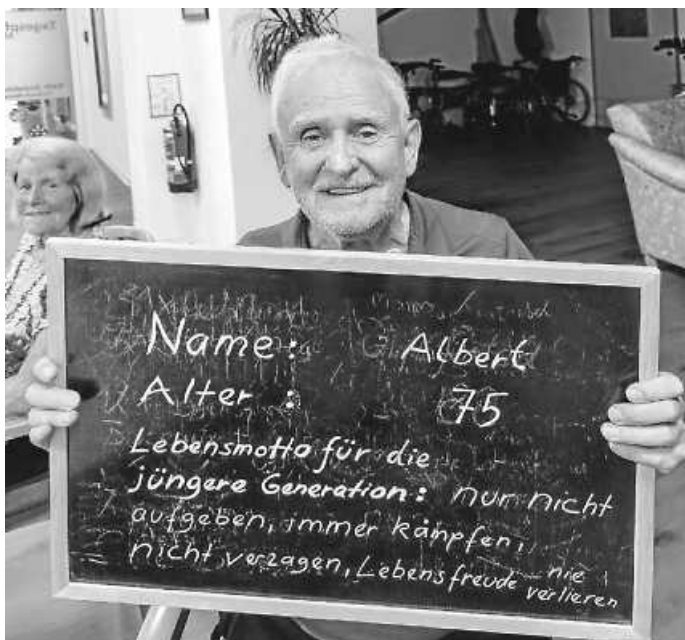 Name: Albert
Alter: 75
Lebensmotto für die
jüngere Generation: nur nicht
aufgeben, immer kämpfen,
nicht verzagen, Lebensfreude nie verlieren